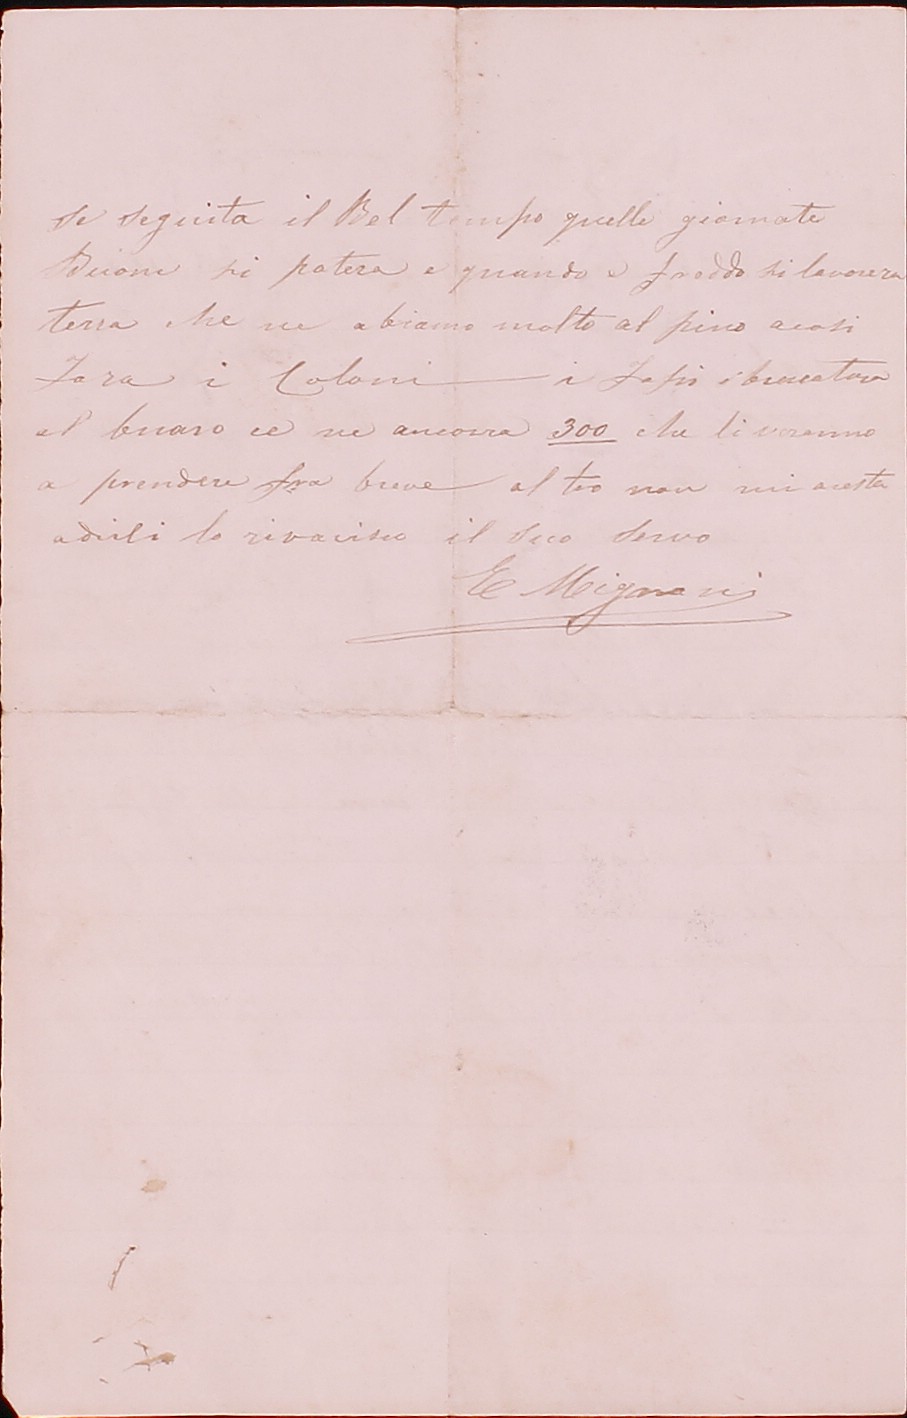 se seguita il Bel tempo quelle giornate
Buone si potera e quando e freddo si lavorera
terra che ne abiamo molto al pino acosi
fara i Coloni i
al buraro ce ne ancora 300 che li veranno
a prendere fra breve al tro non mi aresta
adirli lo riverisco il suo servo
E Mignani